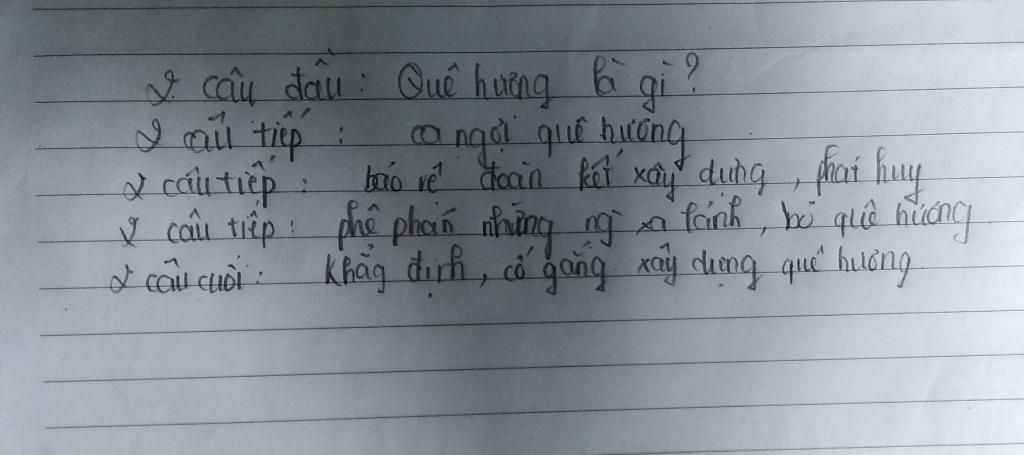 2 câu đầu: Quê hương là gì?
2 câu tiếp: ca ngợi quê hương
2 câu tiếp: bảo vệ đoàn kết xây dựng, phát huy
2 câu tiếp: phê phán những ng xa lánh, bỏ quê hương
2 câu cuối: Khẳg định, cố gắng xây dựng quê hương